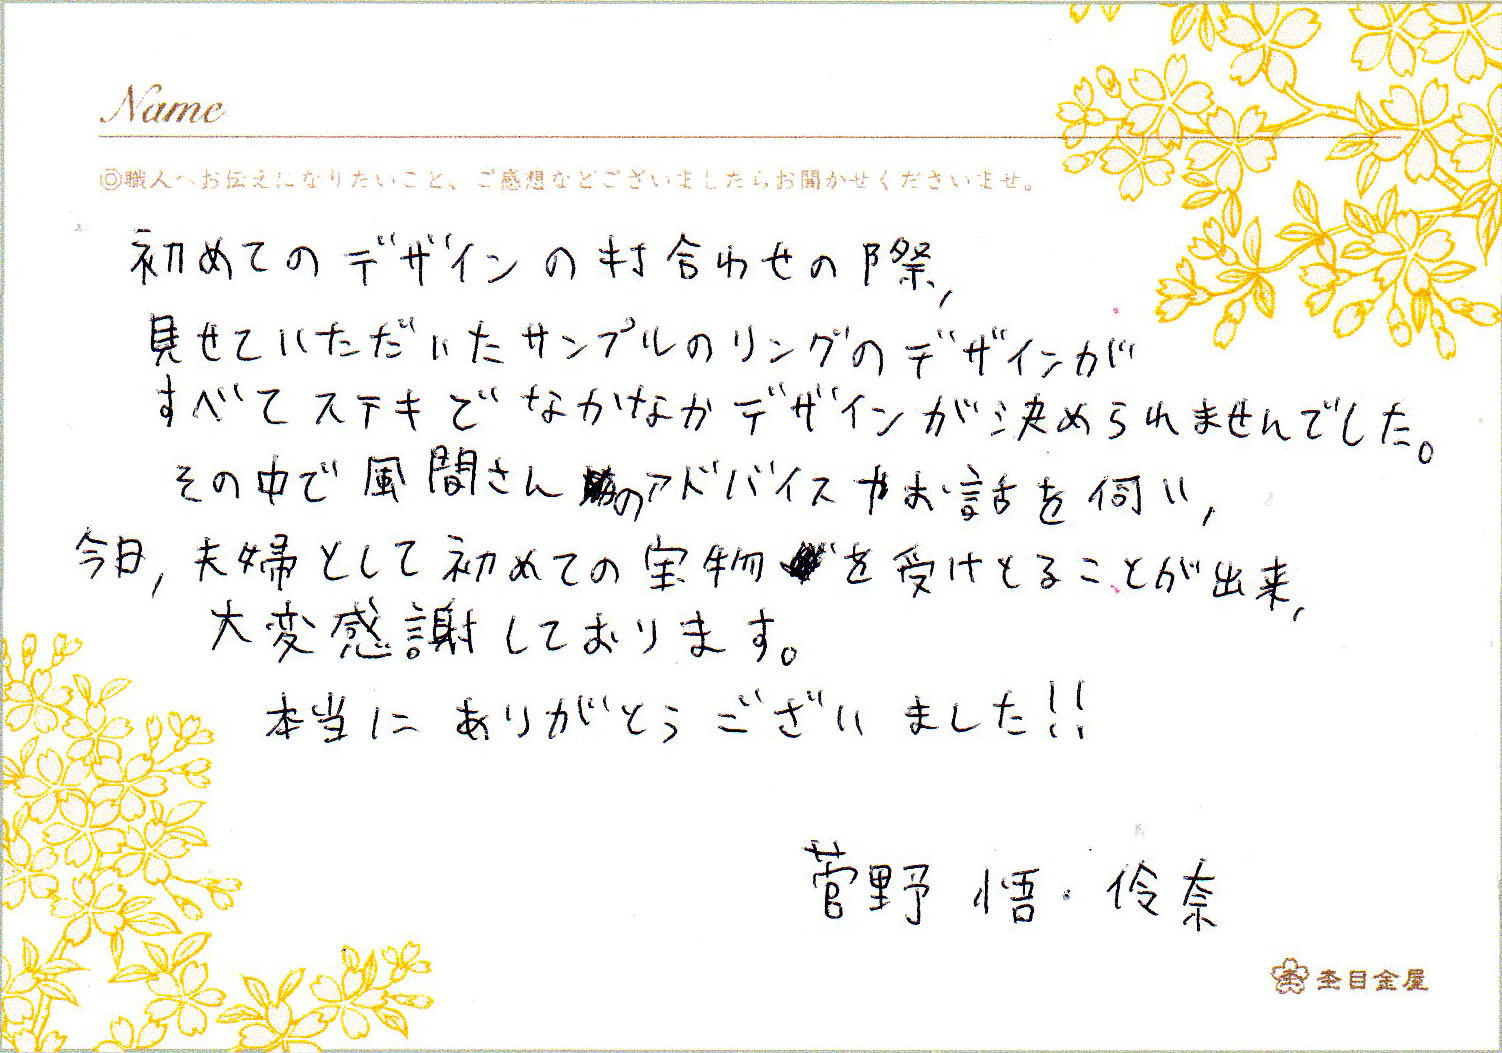 Name
◎職人へお伝えになりたいこと、ご感想などございましたらお聞かせくださいませ。
初めてのデザインの打合わせの際,
見せていただいたサンプルのリングのデザインが
すべてステキでなかなかデザインが決められませんでした。
その中で風間さんのアドバイスやお話を伺い,
今日,夫婦として初めての宝物を受けとることが出来,
大変感謝しております。
本当にありがとうございました!!
菅野 悟・伶奈
杢目金屋